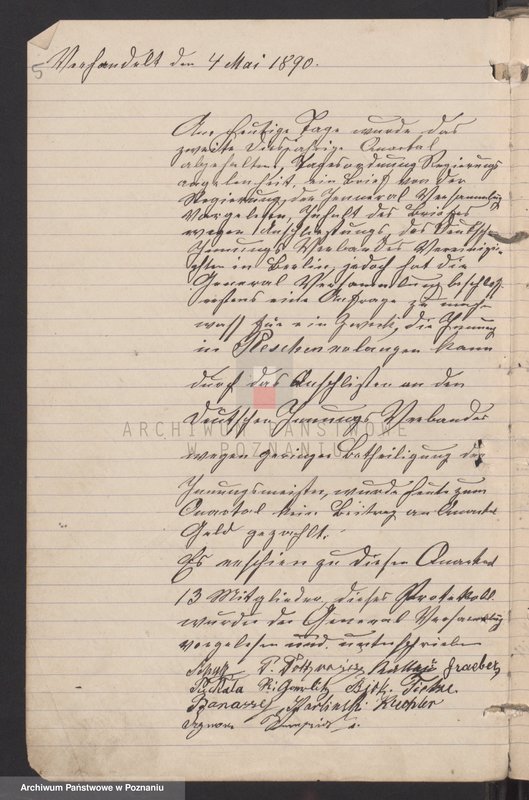 5
Verhandelt den 4 Mai 1890.
Am heutige Tage wurde das
zweite diesjährige Quartal
abgehalten, Tagesordnung Regierungs
angelenheit, ein Brief von der
Regierung, der General Versammlung
Vorgelesen, Inhalt des Briefes
wegen Anschliessung, des Deutsche
Innungs Verbandes Vereinigte
in Berlin, jedoch hat die
General Versammlung beschlos
erstens eine Anfrage zu mach
was für ein Zweck, die Innung
in Pleschen erlangen kann
durch das Anschlissen an den
Deutschen Innungs Verbandes
wegen geringer Betheiligung der
Innungsmeister, wurde heute zum
Quartal kein Beitrag an Quartal
Geld gezahlt.
Es erschien zu diesen Quartal
13 Mitglieder, dieses Protokoll
wurde der General Versammlung
vorgelesen und unterschrieben
Graeber
Tietze
Karlinski
ARCHIWUM PAŃSTWOWE
W POZNANIU
Archiwum Państwowe w Poznaniu